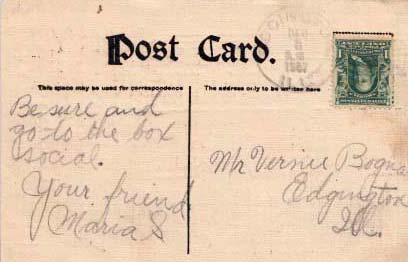 Post Card.
This space may be used for correspondence
The address only to be written here
Be sure and
go to the box
social.
Your friend
Maria S
Mr Vernie Bogna
Edgington
Ill.
1
1